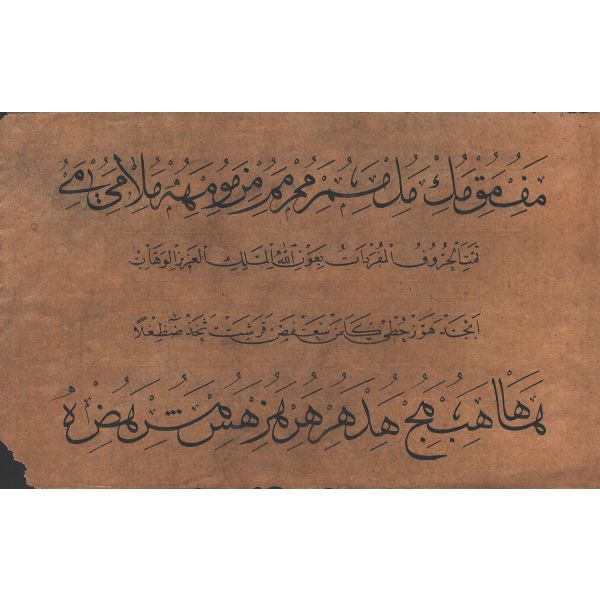 مف مق مك مل مم مر مم مر من مو مه مه ملا مى مے
تمت الحروف المفردات بعون الله الملك العزيز الوهاب
ابجد هوز حطي كلمن سعفص قرشت ثخذ ضظغلا
ها هب هج هد هر هز هس هش هض ه